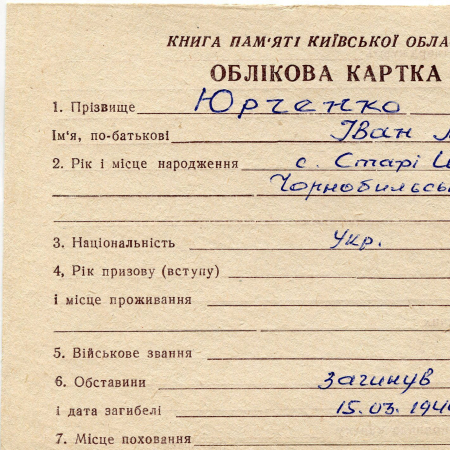 КНИГА ПАМ'ЯТІ КИЇВСЬКОЇ
ОБЛІКОВА КАРТКА
1. Прізвище Юрченко
Ім'я, по-батькові Іван
2. Рік і місце народження с. Старі
3. Національність Укр.
4, Рік призову (вступу)
і місце проживання
5. Військове звання
6. Обставини загинув
і дата загибелі 15.03.
7. Місце поховання